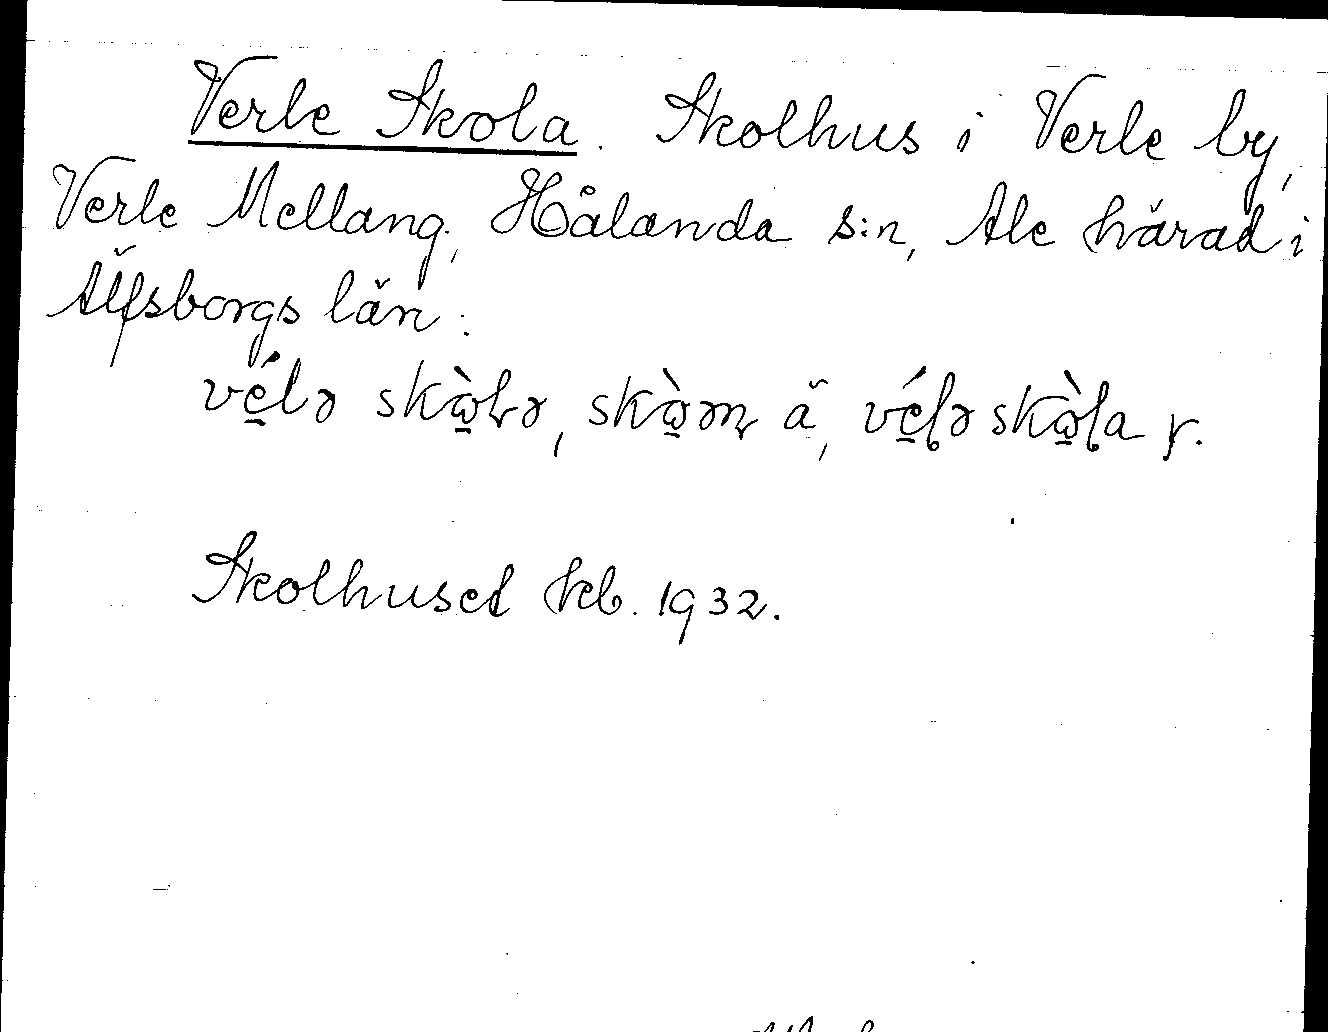 Verle Skola. Skolhus i Verle by,
Verle Mellang., Hålanda s:n, Ale härad i
Älfsborgs län.:
vé̱lə skò̱lə, skò̱ən ä, vé̱ḷə skò̱ḷa y.
Skolhuset feb. 1932.